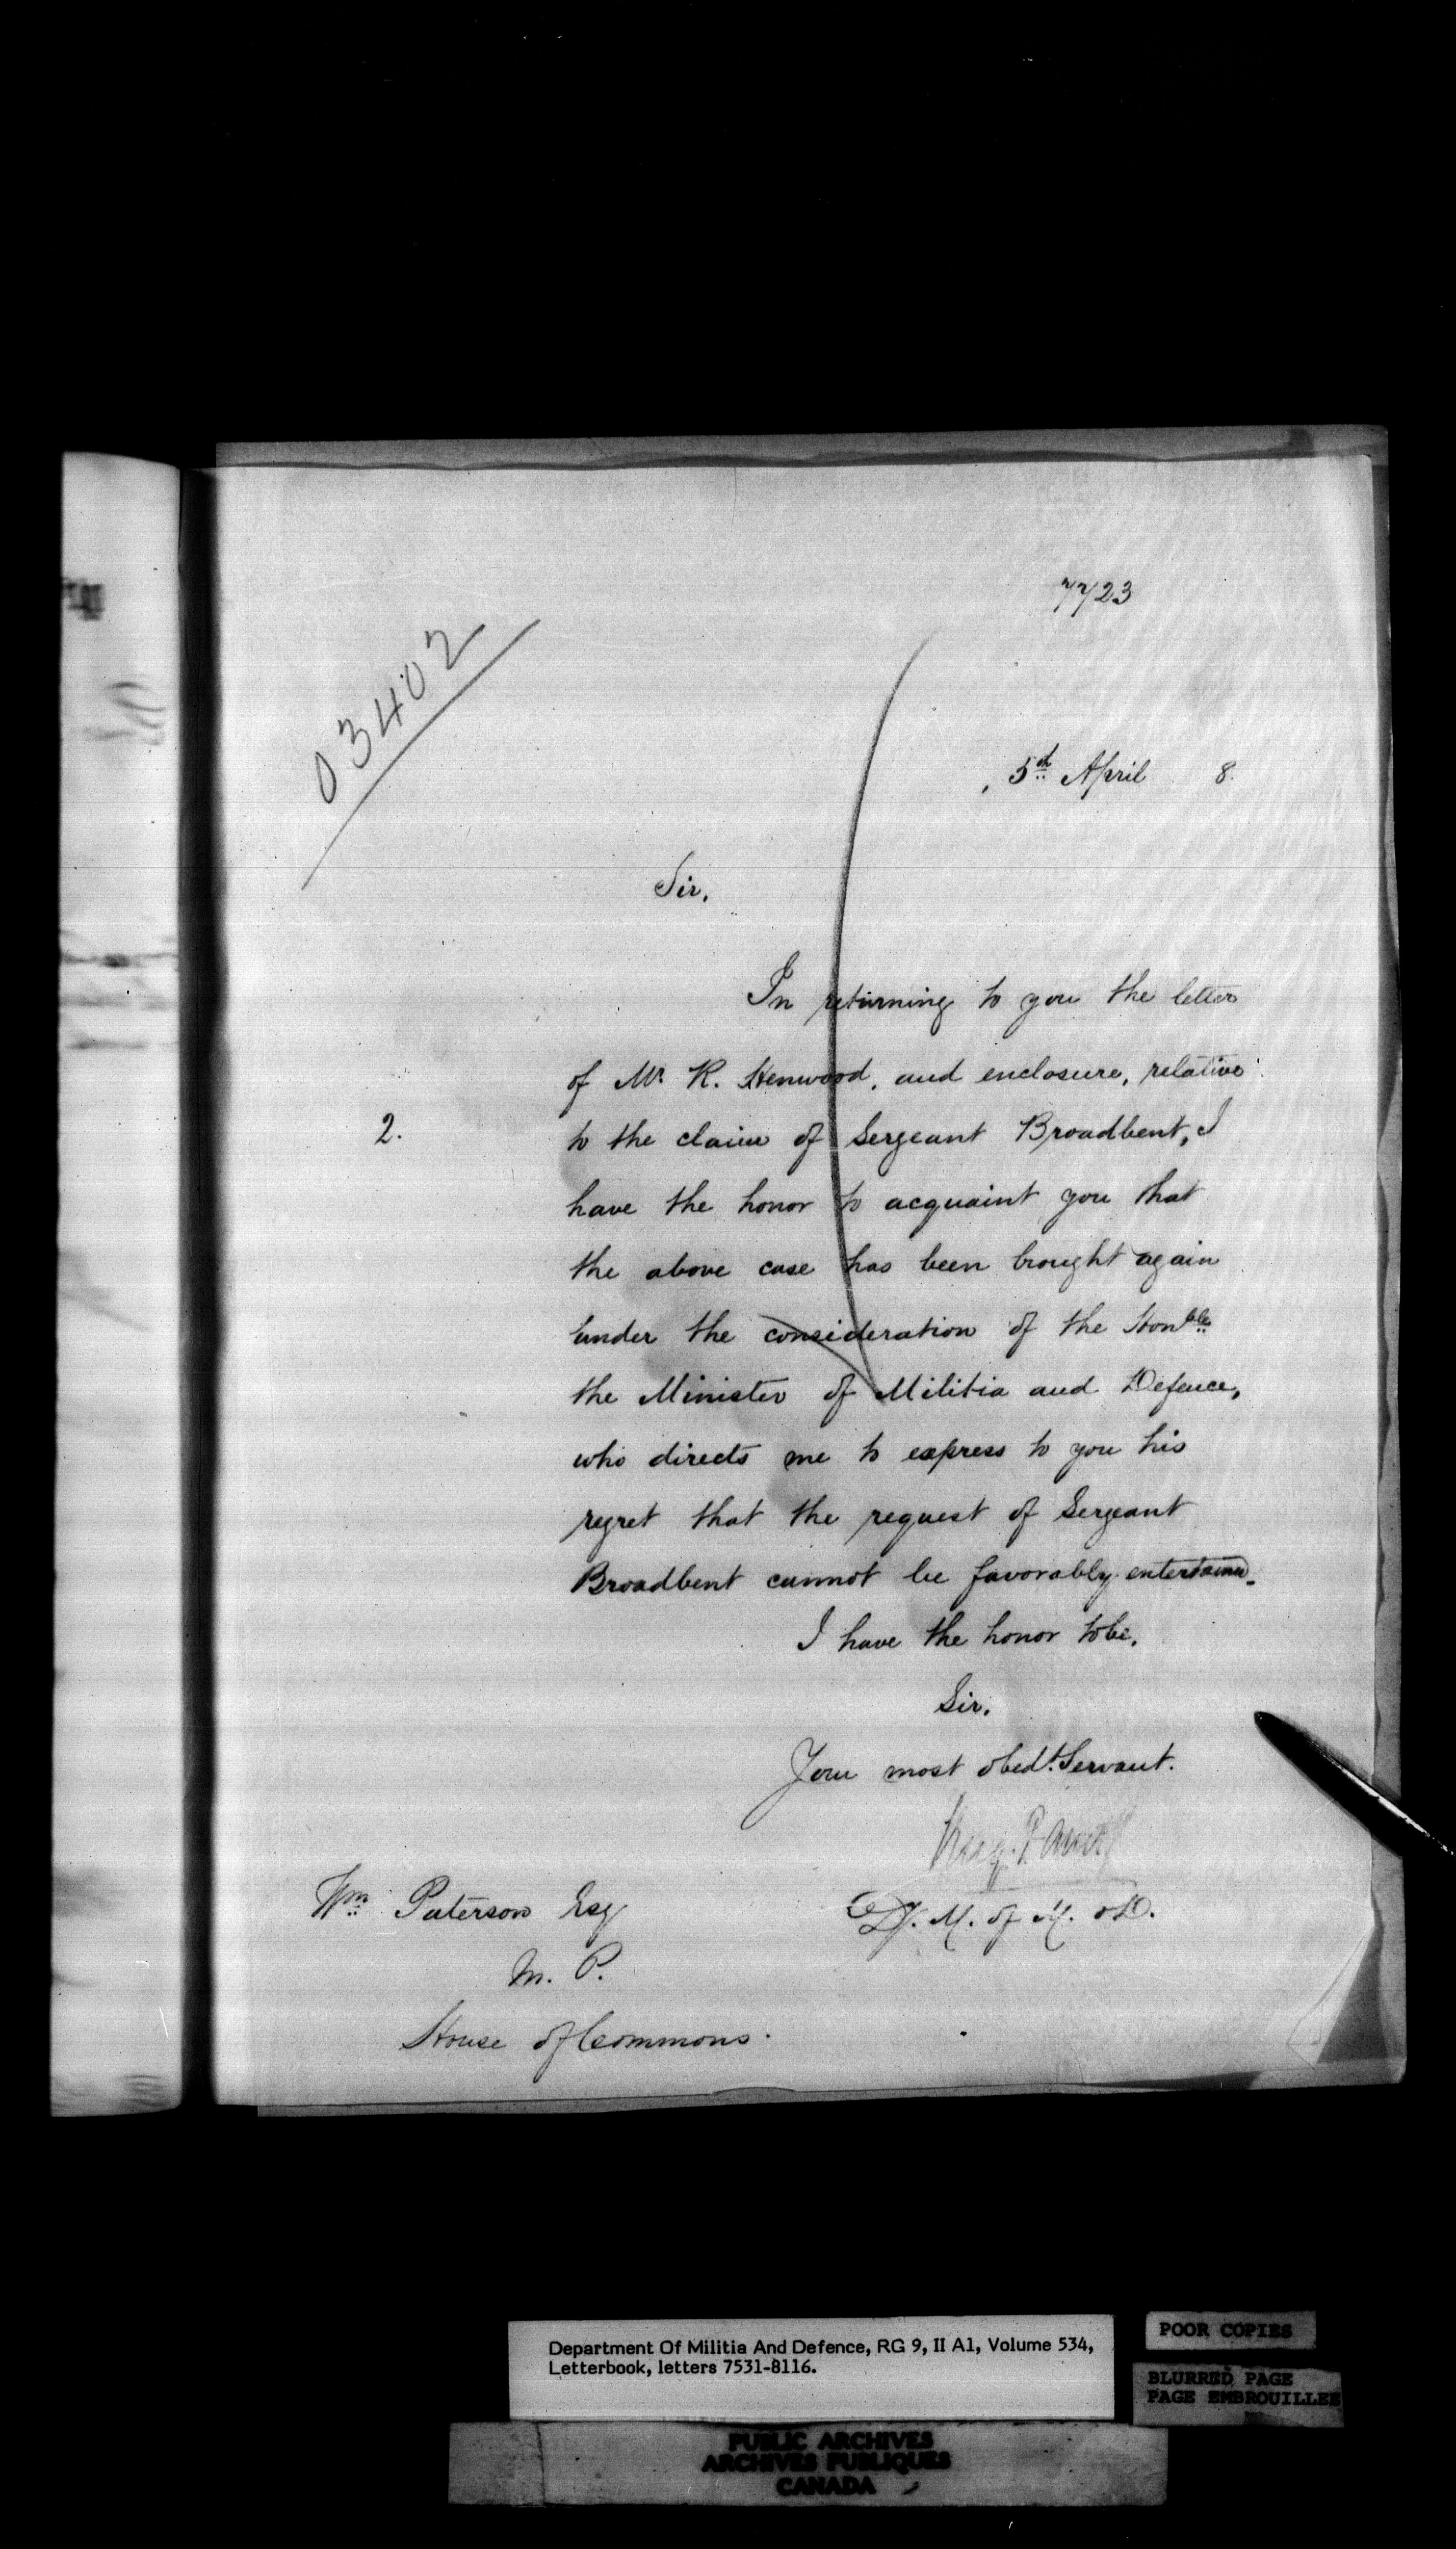 7723
03402
5th April 8.
Sir,
In returning to you the letter
of Mr. R. Henwood, and enclosure, relative
2.
to the claim of Sergeant Broadbent, I
have the honor to acquaint you that
the above case has been brought again
under the consideration of the Honble
the Minister of Militia and Defence,
who directs me to express to you his
regret that the request of Sergeant
Broadbent cannot be favorably entertained.
I have the honor to be,
Sir,
Your most obedt. Servant.
D. M. of M. & D.
Wm Paterson Esq
M. P.
House of Commons.
Department Of Militia And Defence, RG 9, II A1, Volume 534,
Letterbook, letters 7531-8116.
POOR COPIES
BLURRED PAGE
PAGE EMBROUILLEE
PUBLIC ARCHIVES
ARCHIVES PUBLIQUES
CANADA